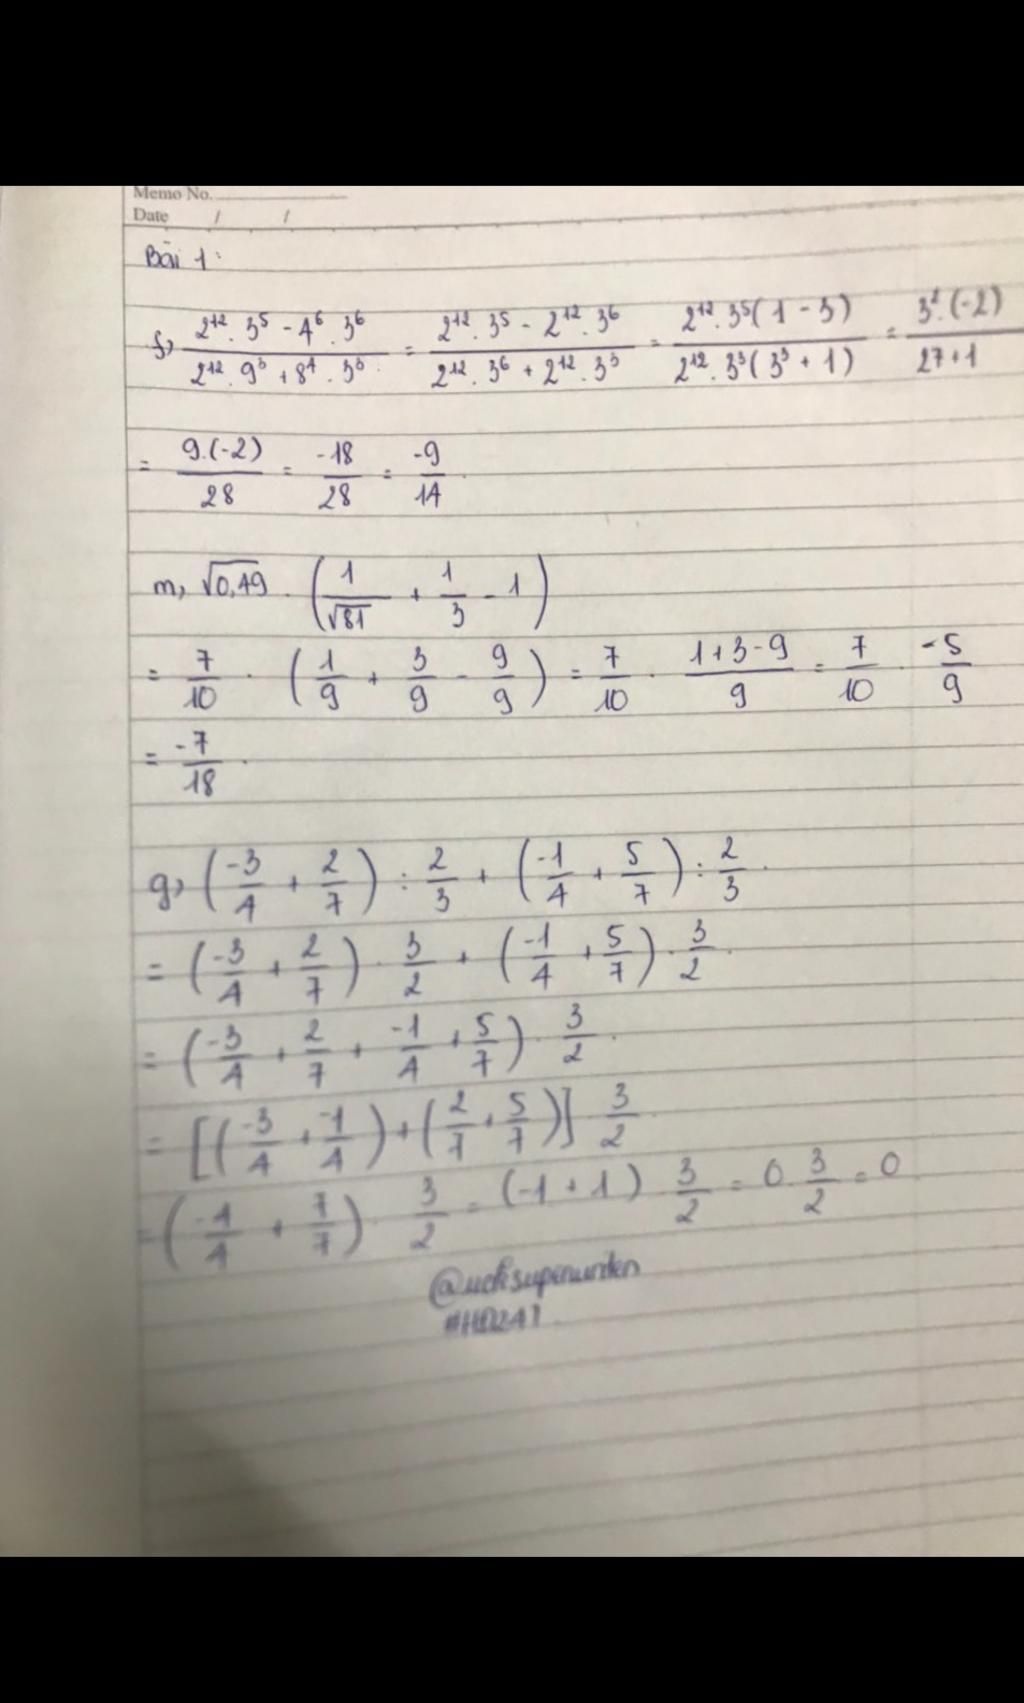 Memo No.
Date / /
Bài 1:
f, (2¹² . 3⁵ - 4⁶ . 3⁶)/(2¹² . 9³ + 8⁴ . 3³) = (2¹² . 3⁵ - 2¹² . 3⁶)/(2¹² . 3⁶ + 2¹² . 3³) = (2¹² . 3⁵(1 - 3))/(2¹² . 3³(3³ + 1)) = (3² . (-2))/(27 + 1)
= (9.(-2))/28 = -18/28 = -9/14.
m, √0,49 . (1/√81 + 1/3 - 1)
= 7/10 . (1/9 + 3/9 - 9/9) = 7/10 . (1+3-9)/9 = 7/10 . -5/9
= -7/18.
g, (-3/4 + 2/7) : 2/3 + (-1/4 + 5/7) : 2/3.
= (-3/4 + 2/7) . 3/2 + (-1/4 + 5/7) . 3/2.
= (-3/4 + 2/7 + -1/4 + 5/7) . 3/2.
= [(-3/4 + -1/4) + (2/7 + 5/7)] . 3/2.
= (-4/4 + 7/7) . 3/2 = (-1 + 1) . 3/2 = 0 . 3/2 = 0